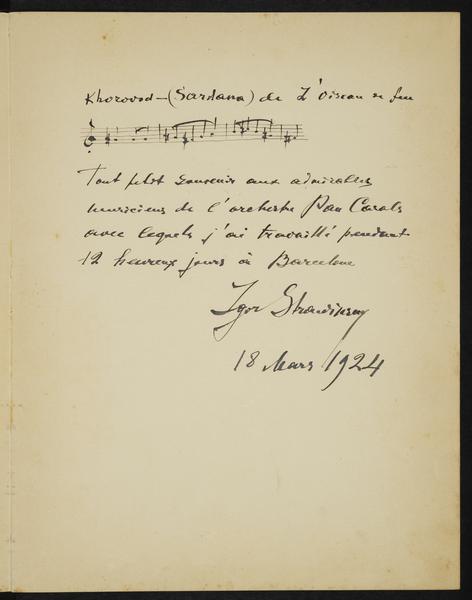 Khorovod – (Sardana) de L'Oiseau de feu
Tout petit souvenir aux admirables
musiciens de l'orchestre Pau Casals
avec lequels j'ai travaillé pendant
12 heureux jours à Barcelone
Igor Strawinsky
18 Mars 1924